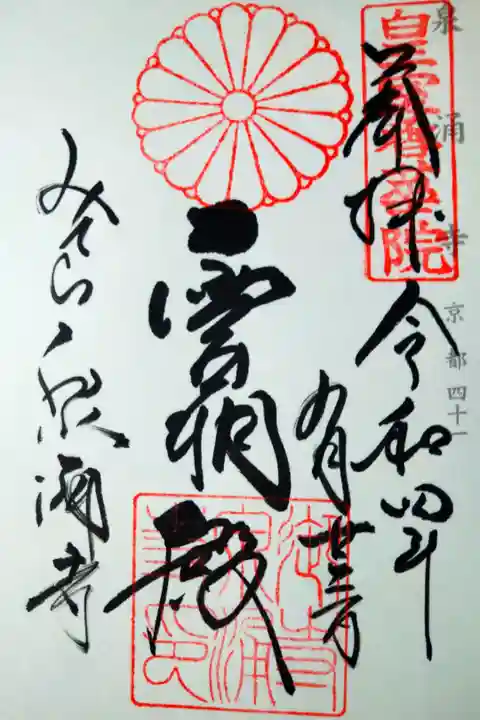 泉涌寺 京都四十一
皇室香華院
奉拝 令和四年
九月廿三日
霊明殿
みてら 泉涌寺